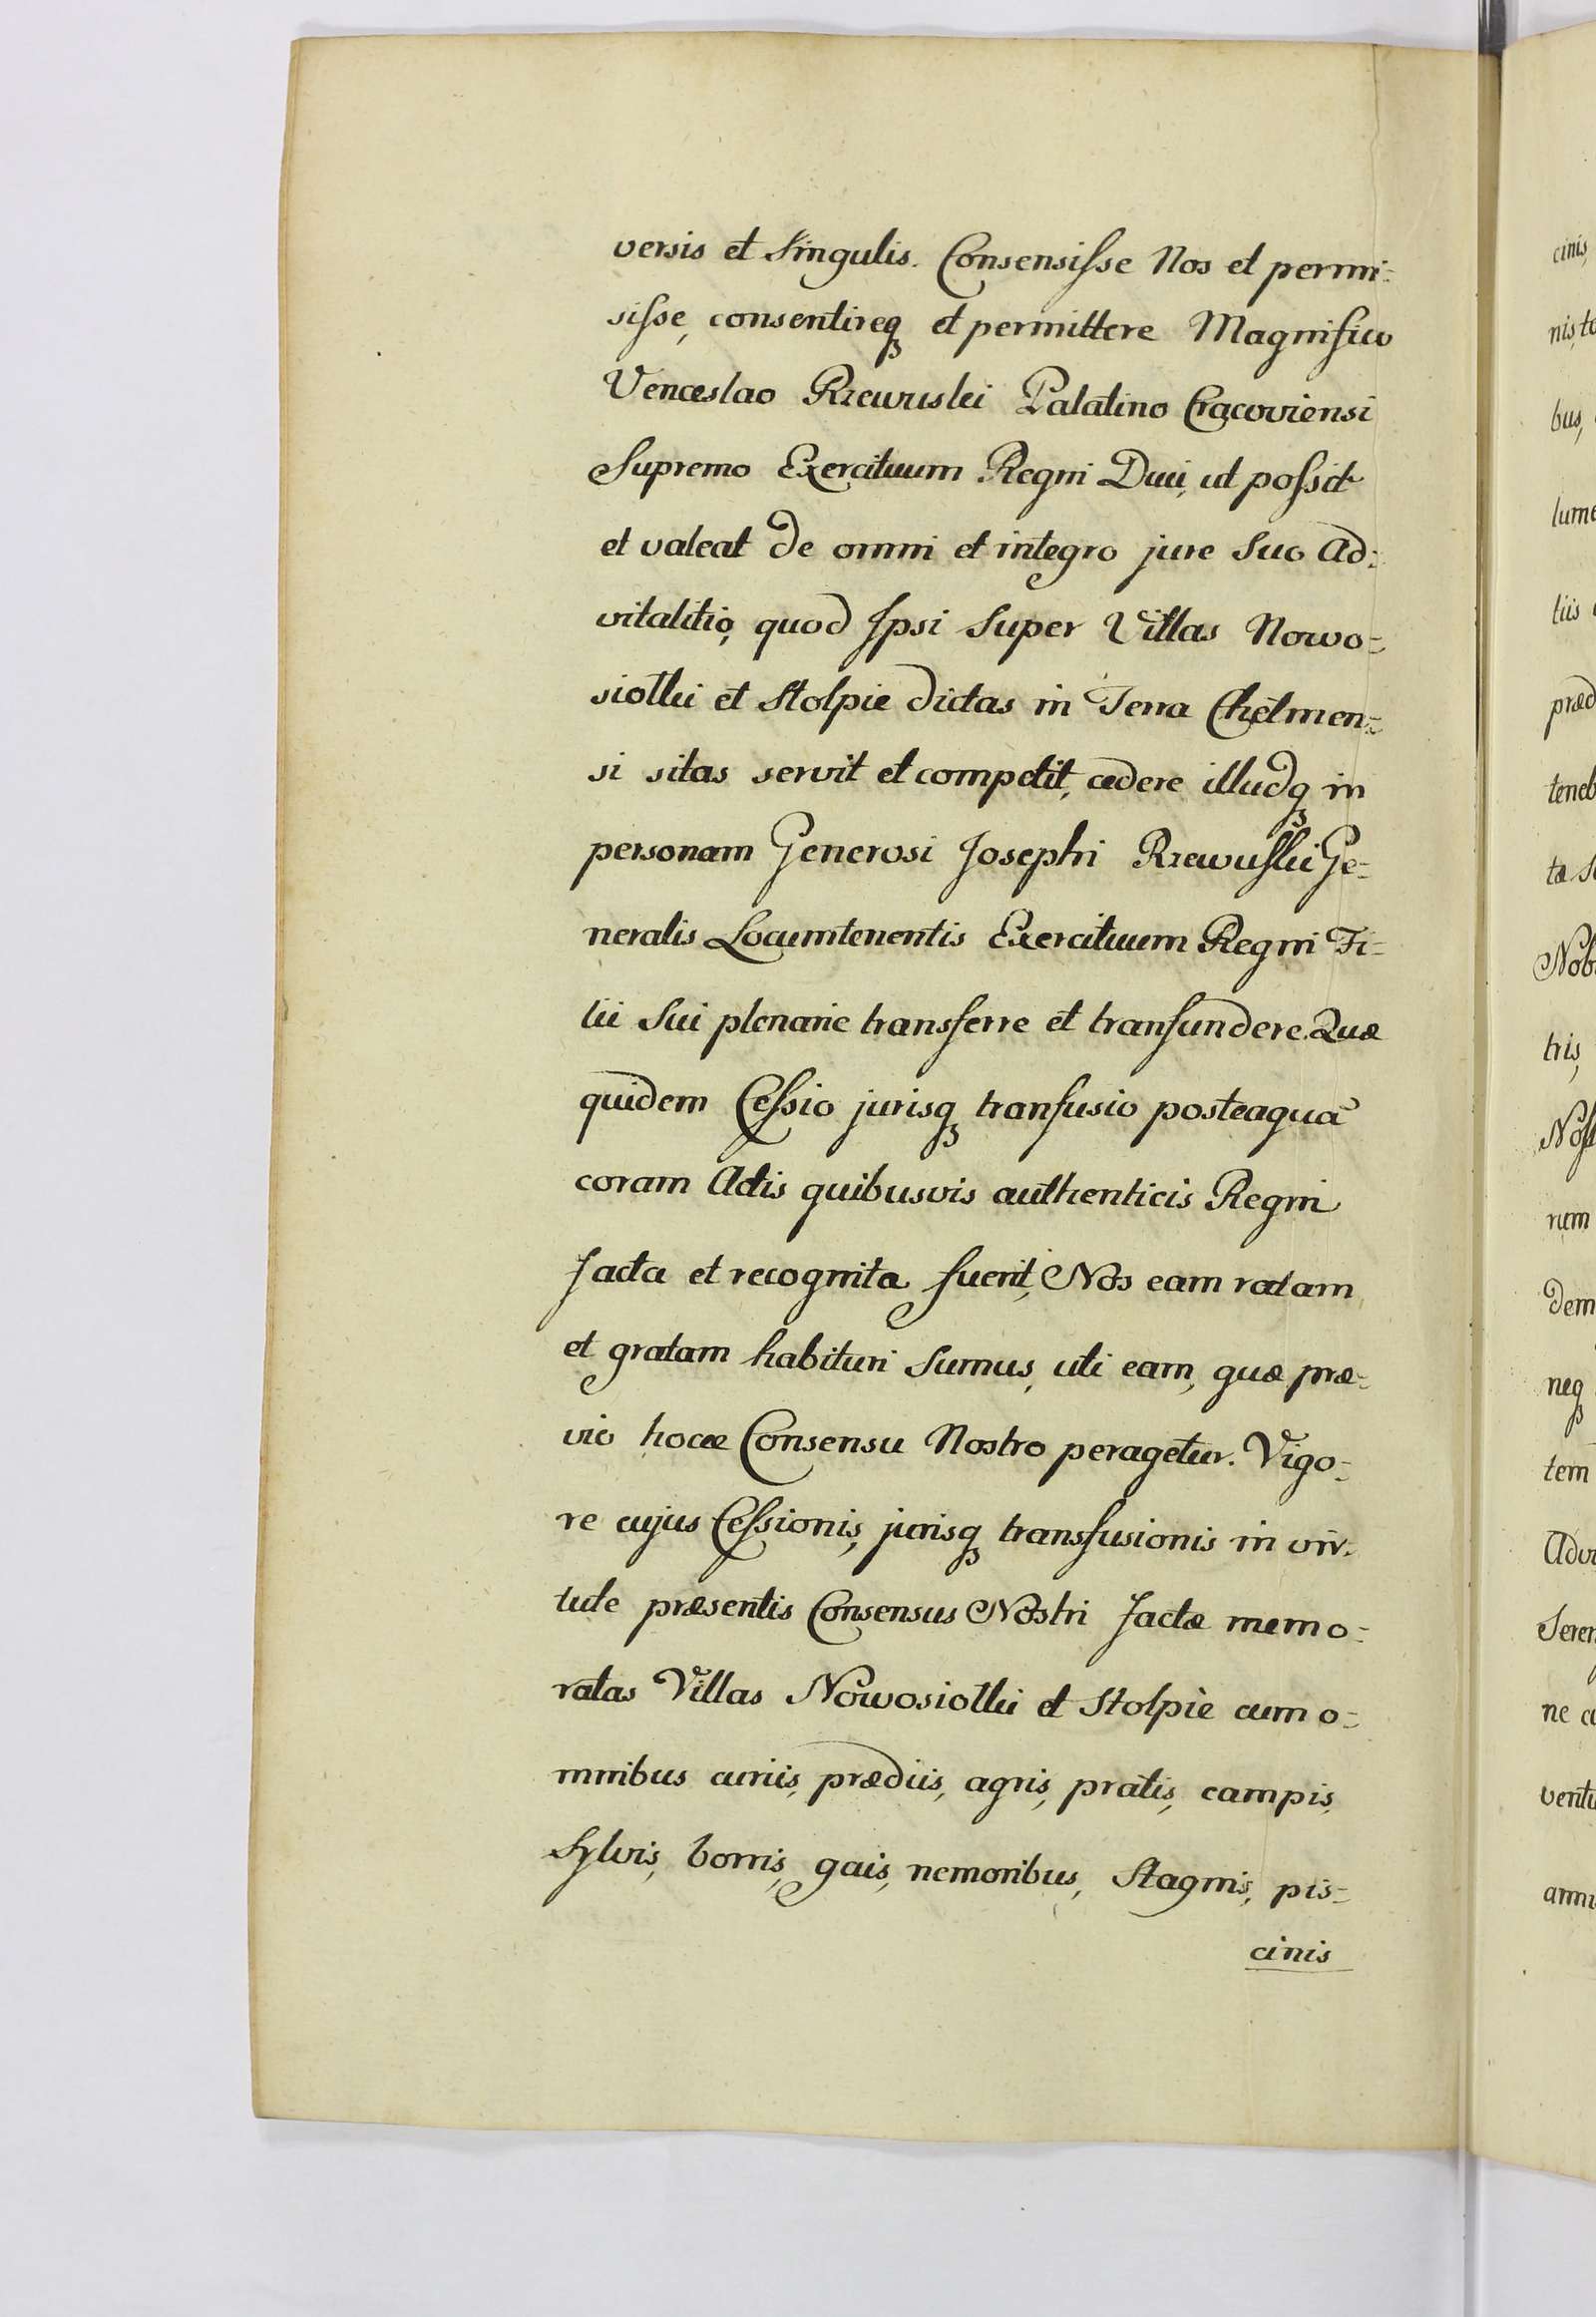 versis et Singulis. Consensisse Nos et permi=
sisse, consentireq; et permittere Magnifico
Venceslao Rzewuski Palatino Cracoviensi
Supremo Exercituum Regni Duci, ut possit
et valeat de omni et integro jure Suo Ad=
vitalitio, quod Ipsi Super Villas Nowo=
siolki et Stolpie dictas in Terra Chelmen=
si sitas servit et competit, cedere illudq; in
personam Generosi Josephi Rzewuski Ge=
neralis Locumtenentis Exercituum Regni Fi=
lii Sui plenarie transferre et transfundere. Quæ
quidem Cessio jurisq; transfusio posteaquã
coram Actis quibusvis authenticis Regni
facta et recognita fuerit, Nos eam ratam
et gratam habituri Sumus, uti eam, quæ præ=
vio hocce Consensu Nostro peragetur. Vigo=
re cujus Cessionis, jurisq; transfusionis in vir=
tute præsentis Consensus Nostri factæ memo=
ratas Villas Nowosiolki et Stolpie cum o=
mnibus curiis, prædiis, agris, pratis, campis,
Sylvis, borris, gais, nemoribus, Stagnis, pis=
cinis
cinis,
bus,
tris,
nem
dem
neq;
tem